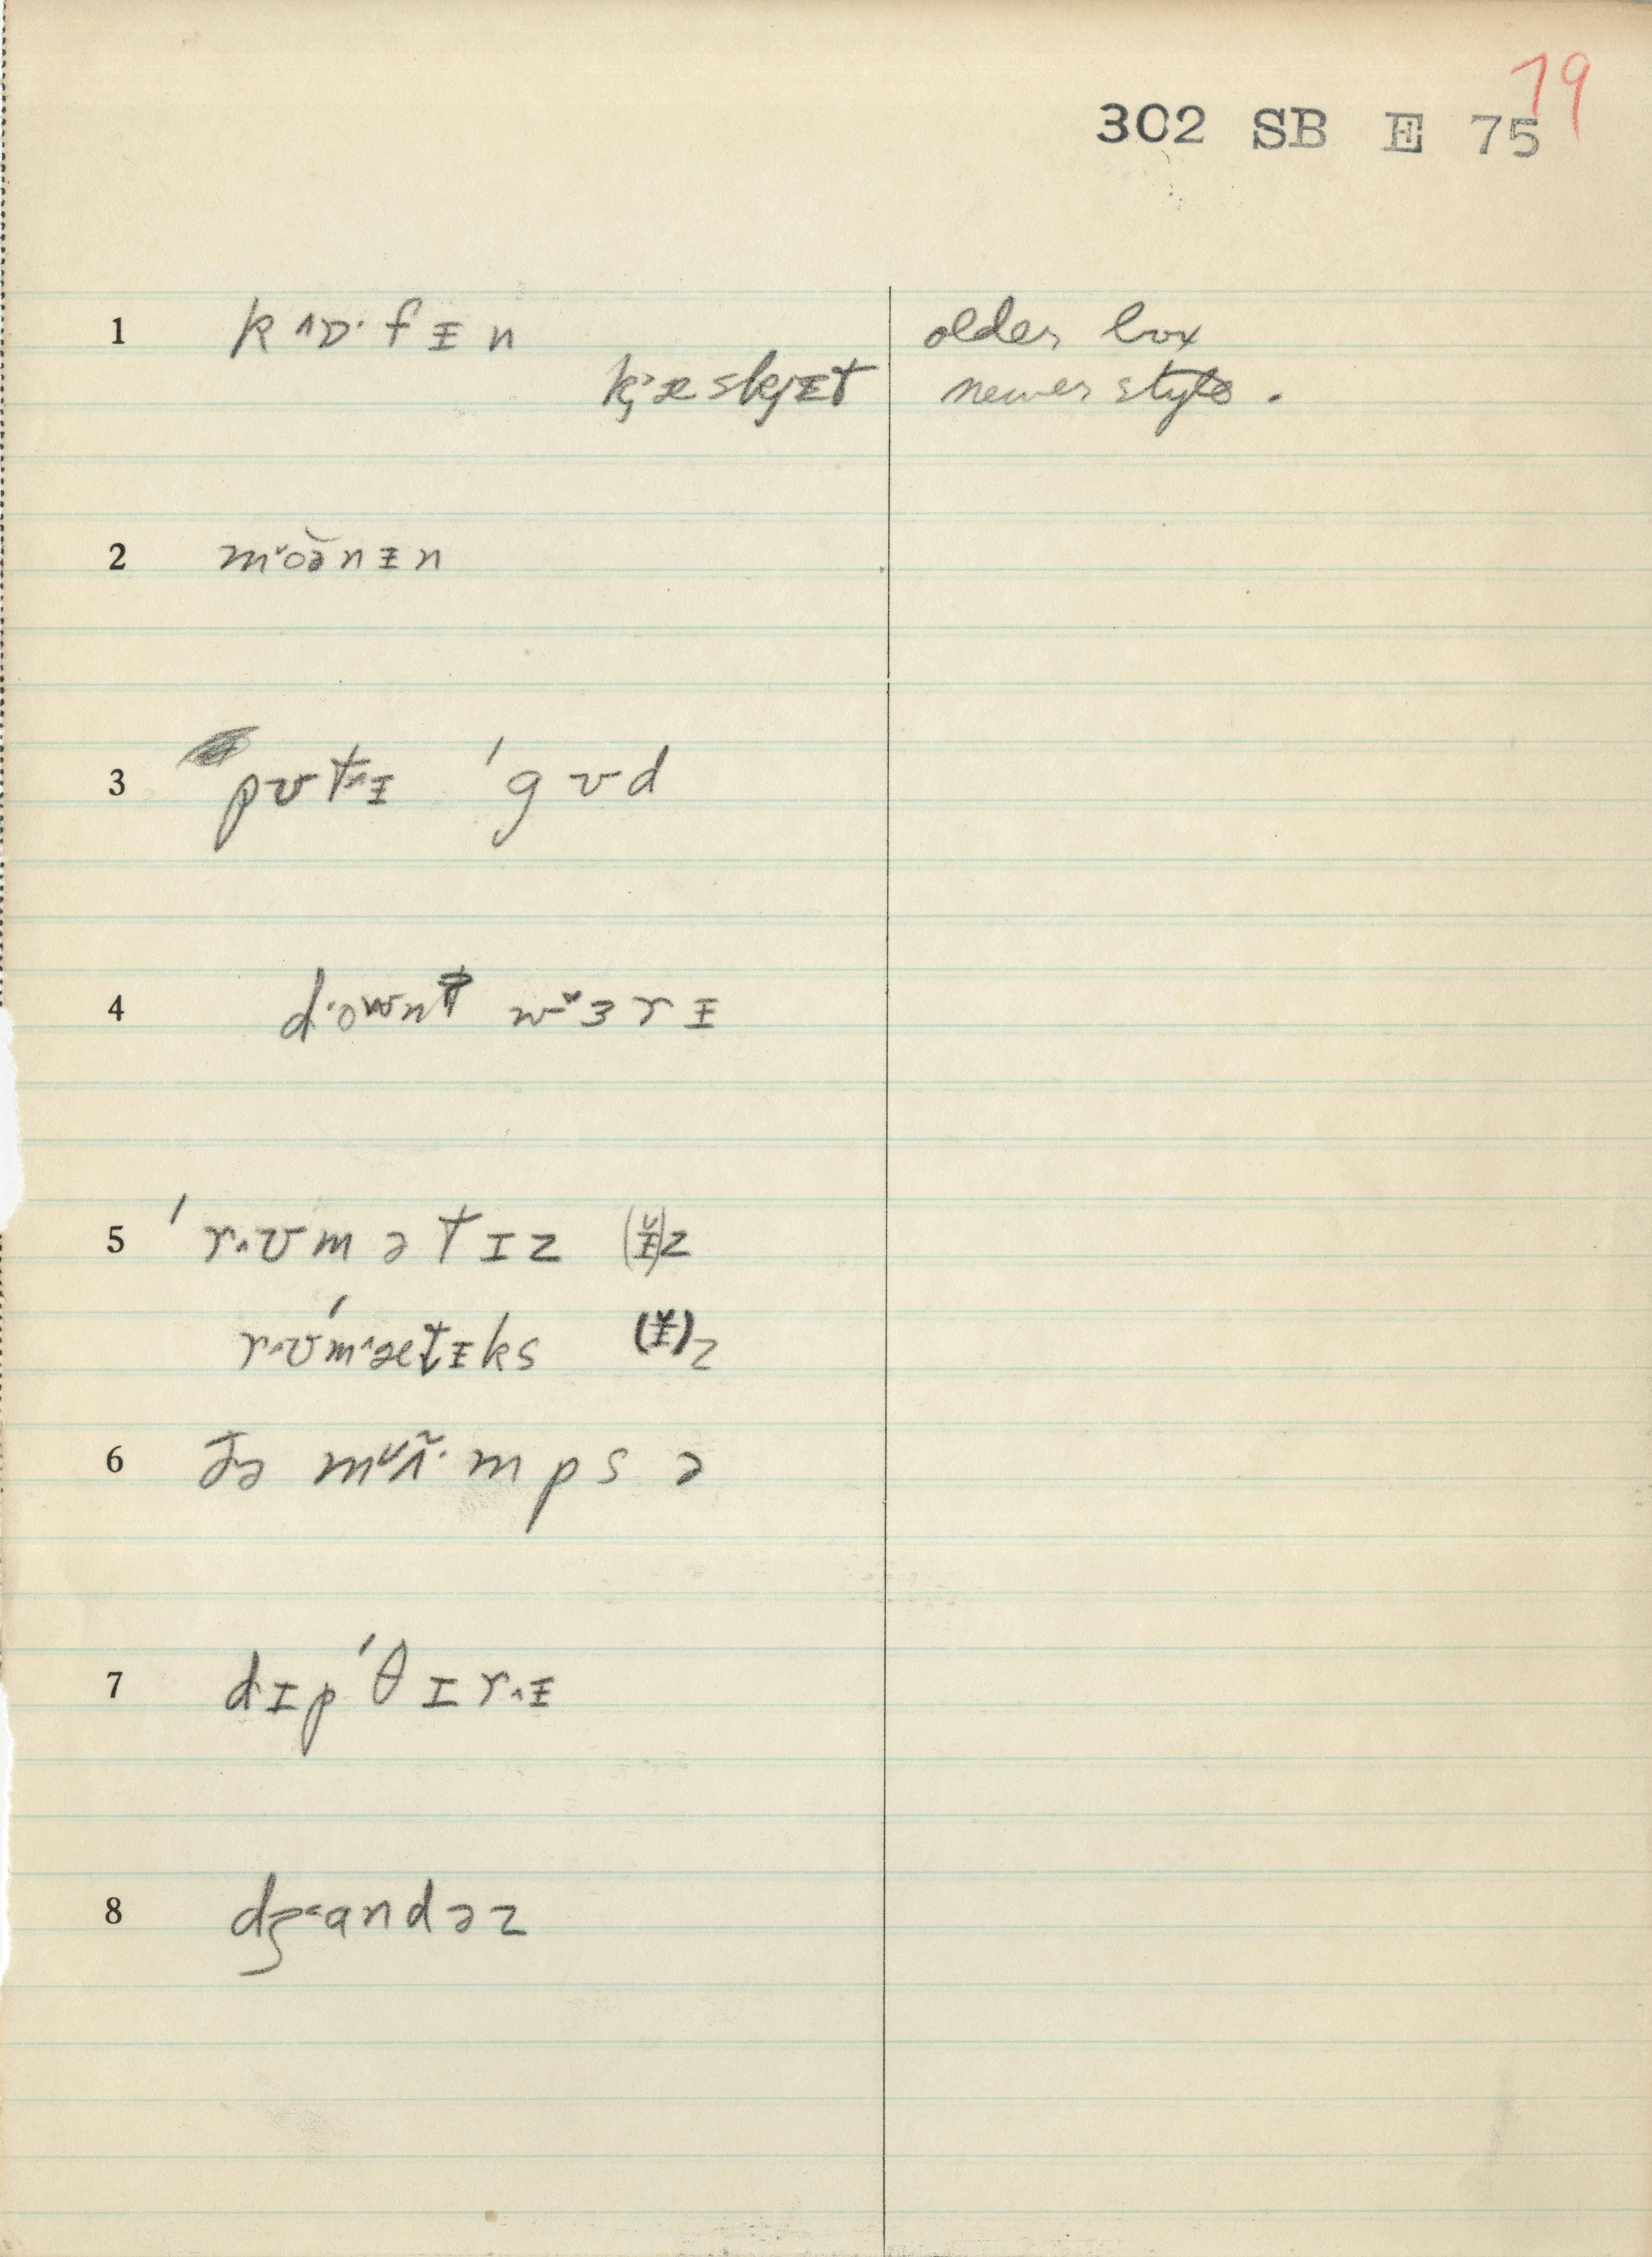 19
302 SB E 75
1 k ˄ɒ· f ᵻ n older box
kj˃æskjᵻt newer style.
2 m˅oə̆nᵻn
3 pʊt˄ᵻ ˈgʊd
4 d·ownt w˅ɜrᵻ
5 ˈr˄ʊmətɪz (ᵻ̆)z
r˄ʊˈm˄ætᵻks (ᵻ̆)z
6 ðə m˅ʌ̃·mpsə
7 dɪpˈθɪr˄ᵻ
8 dʒ˂andəz